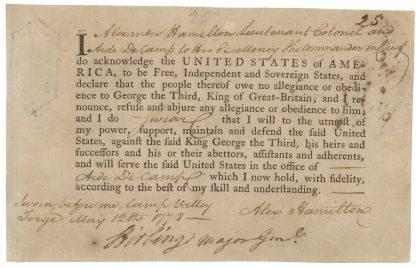 25
25
I Alexander Hamilton Lieutenant Colonel and
Aide De Camp to His Excellency The Commander in Chief
do acknowledge the UNITED STATES of AME-
RICA, to be Free, Independent and Sovereign States, and
declare that the people thereof owe no allegiance or obedi-
ence to George the Third, King of Great-Britain; and I re-
nounce, refuse and abjure any allegiance or obedience to him;
and I do swear that I will to the utmost of
my power, support, maintain and defend the said United
States, against the said King George the Third, his heirs and
successors and his or their abettors, assistants and adherents,
and will serve the said United States in the office of
Aide De Camp which I now hold, with fidelity,
according to the best of my skill and understanding.
Sworn before me, Camp Valley
Forge May 12th 1778
Alex Hamilton
Stirling Major Genl.